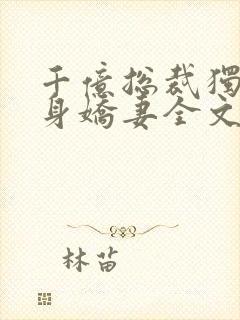 千億総裁獨
身嬌妻全文
林苗